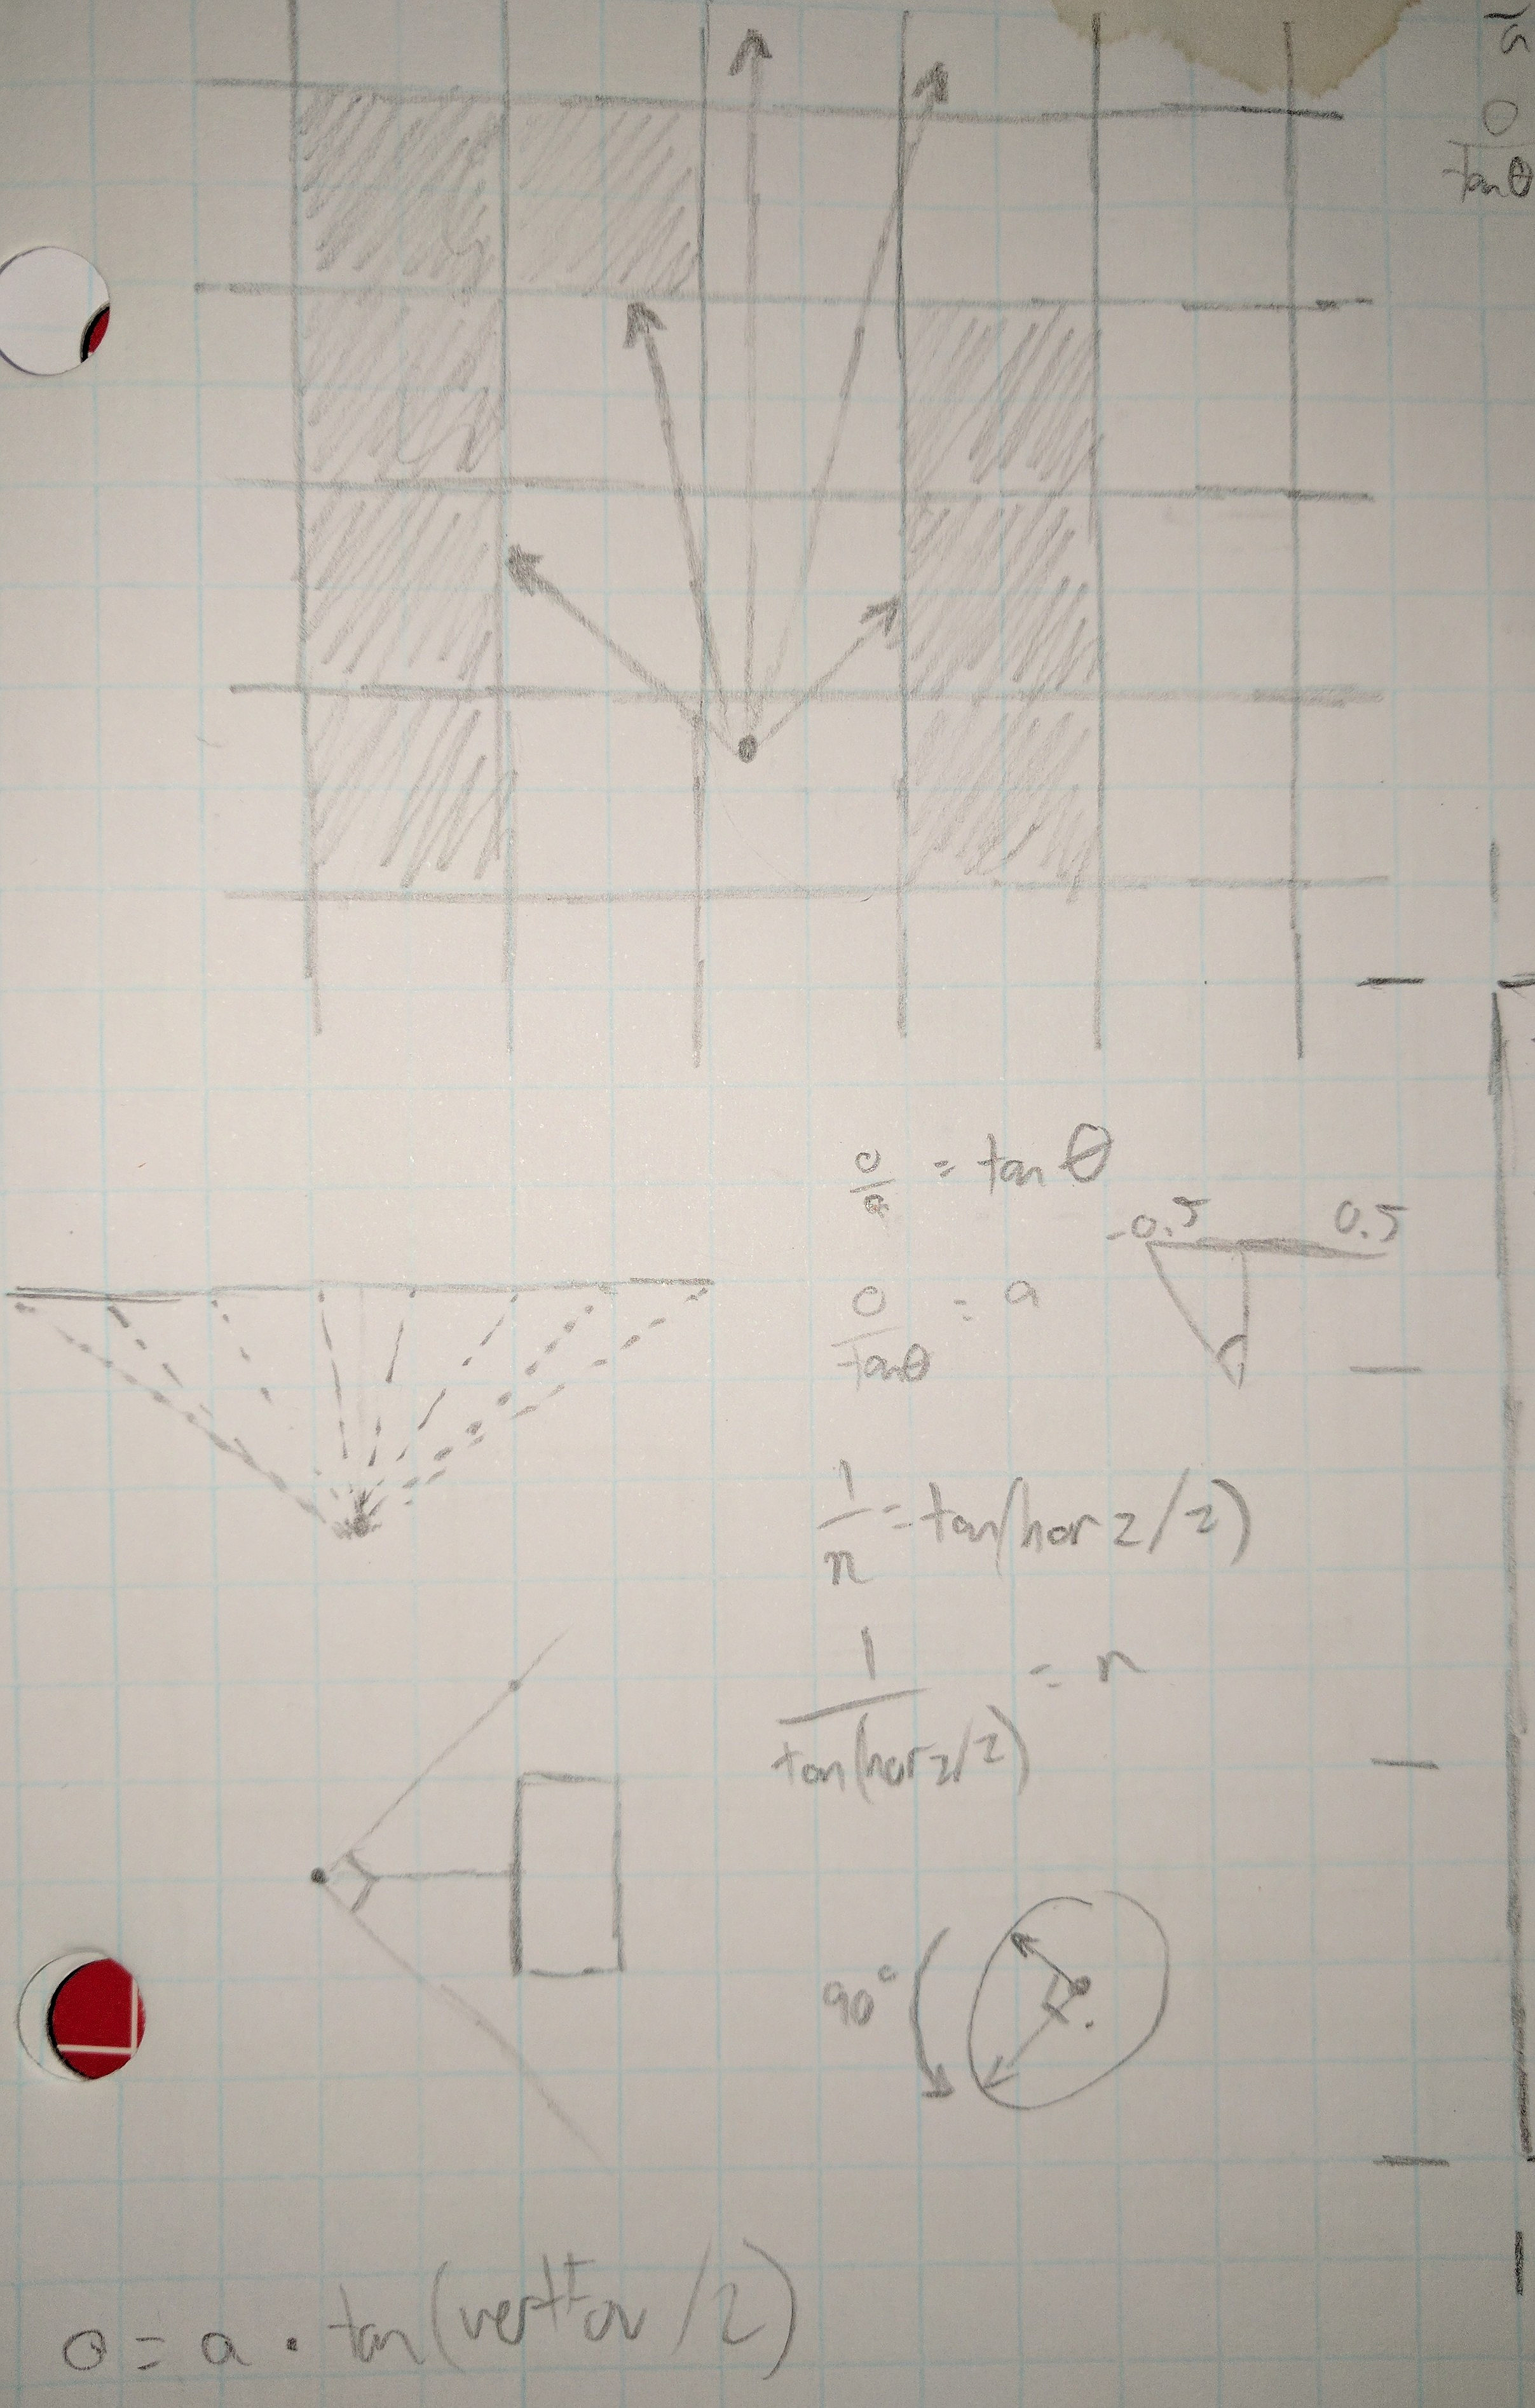 o/tanθ
o/a = tan θ
-0.5 0.5
o/tanθ = a
1/n = tan(horz/2)
1/tan(horz/2) = n
90°
o = a · tan(vertfov/2)